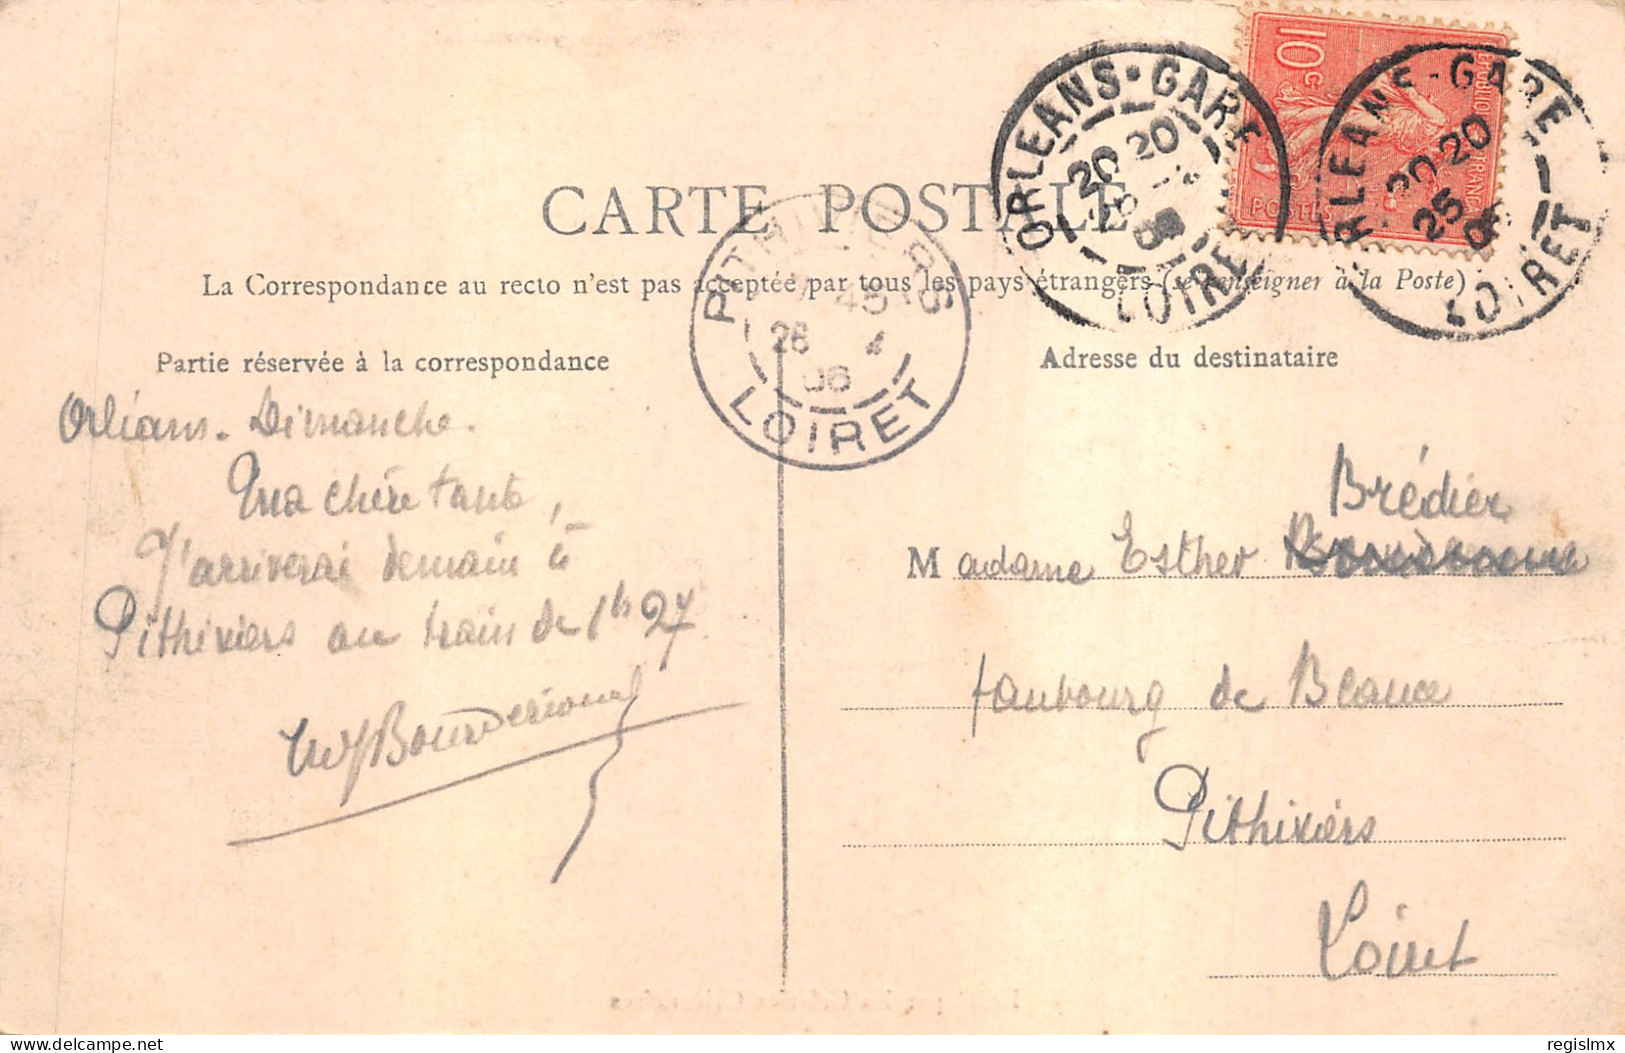 CARTE POSTALE
La Correspondance au recto n'est pas acceptée par tous les pays étrangers (se renseigner à la Poste)
Partie réservée à la correspondance
Adresse du destinataire
ORLEANS-GARE
20 20
LOIRET
ORLEANS-GARE
20 20
25
LOIRET
10 c
POSTES
PITHIVIERS
45
26 4
06
LOIRET
Orléans. Dimanche.
Ma chère tante,
J'arriverai demain à
Pithiviers au train de 1h 27
Brédier
Madame Esther
faubourg de Beauce
Pithiviers
Loiret
delcampe.net
regislmx